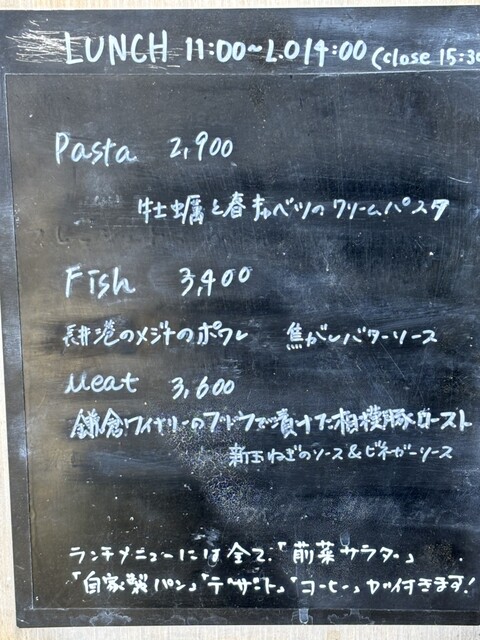 LUNCH 11:00~L.O14:00 (close 15:30
Pasta 2,900
牡蠣と春キャベツのクリームパスタ
Fish 3,400
長井港のメジナのポワレ 焦がしバターソース
Meat 3,600
鎌倉ワイナリーのブドウで漬けた相模豚ロースト
新玉ねぎのソース&ビネガーソース
ランチメニューには全て、「前菜サラダ」
「自家製パン」「デザート」「コーヒー」が付きます!